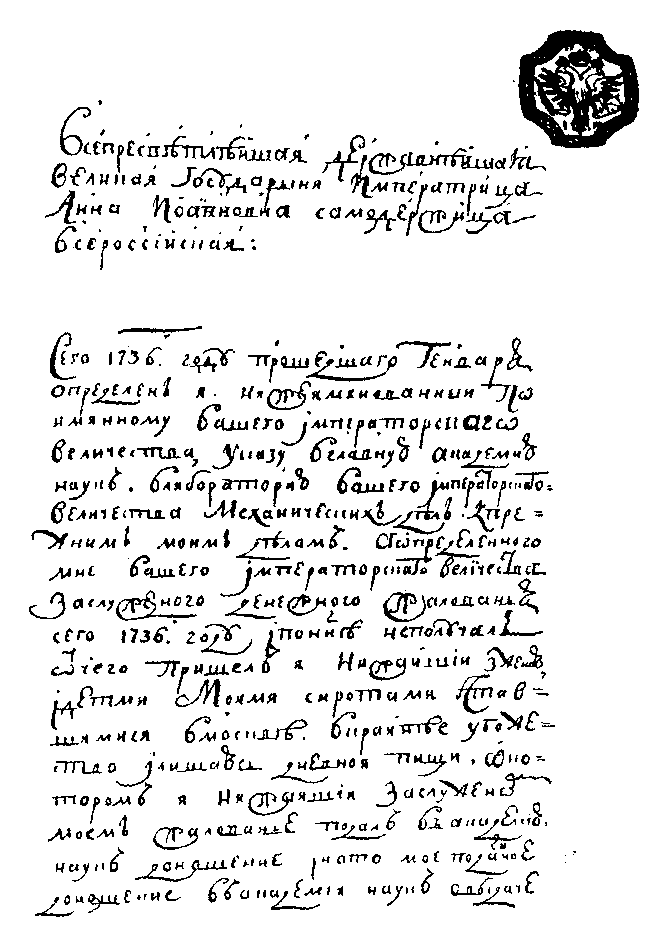 Всепресветлѣишая державнѣишая
великая Государыня Императрица
Анна Иоанновна самодержица
всероссииская:
Сего 1736. году прошедшаго Генваря
определенъ я. нижеимянованныи по
имянному вашего императорскаго
величества, указу вглавную академию
наукъ. влабораторию вашего императорского=
величества Механическихъ дѣлъ. кпре=
жнимъ моимъ дѣламъ. определенного
мне вашего императорского величества
Заслуженого денежного жалованья
сего 1736. году поныне неполучалъ
отчего пришелъ я Нижаишии Зженою,
идетми Моими сиротами Остав=
шимися вмосквѣ. вкраинѣе убоже=
ство илишався дневной пищи. окото=
торомъ я Нижаишии Заслуженом
моемъ жалованье подалъ въ академию.
наукъ доношение покоторое мое поданое
доношение въакадемии наукъ